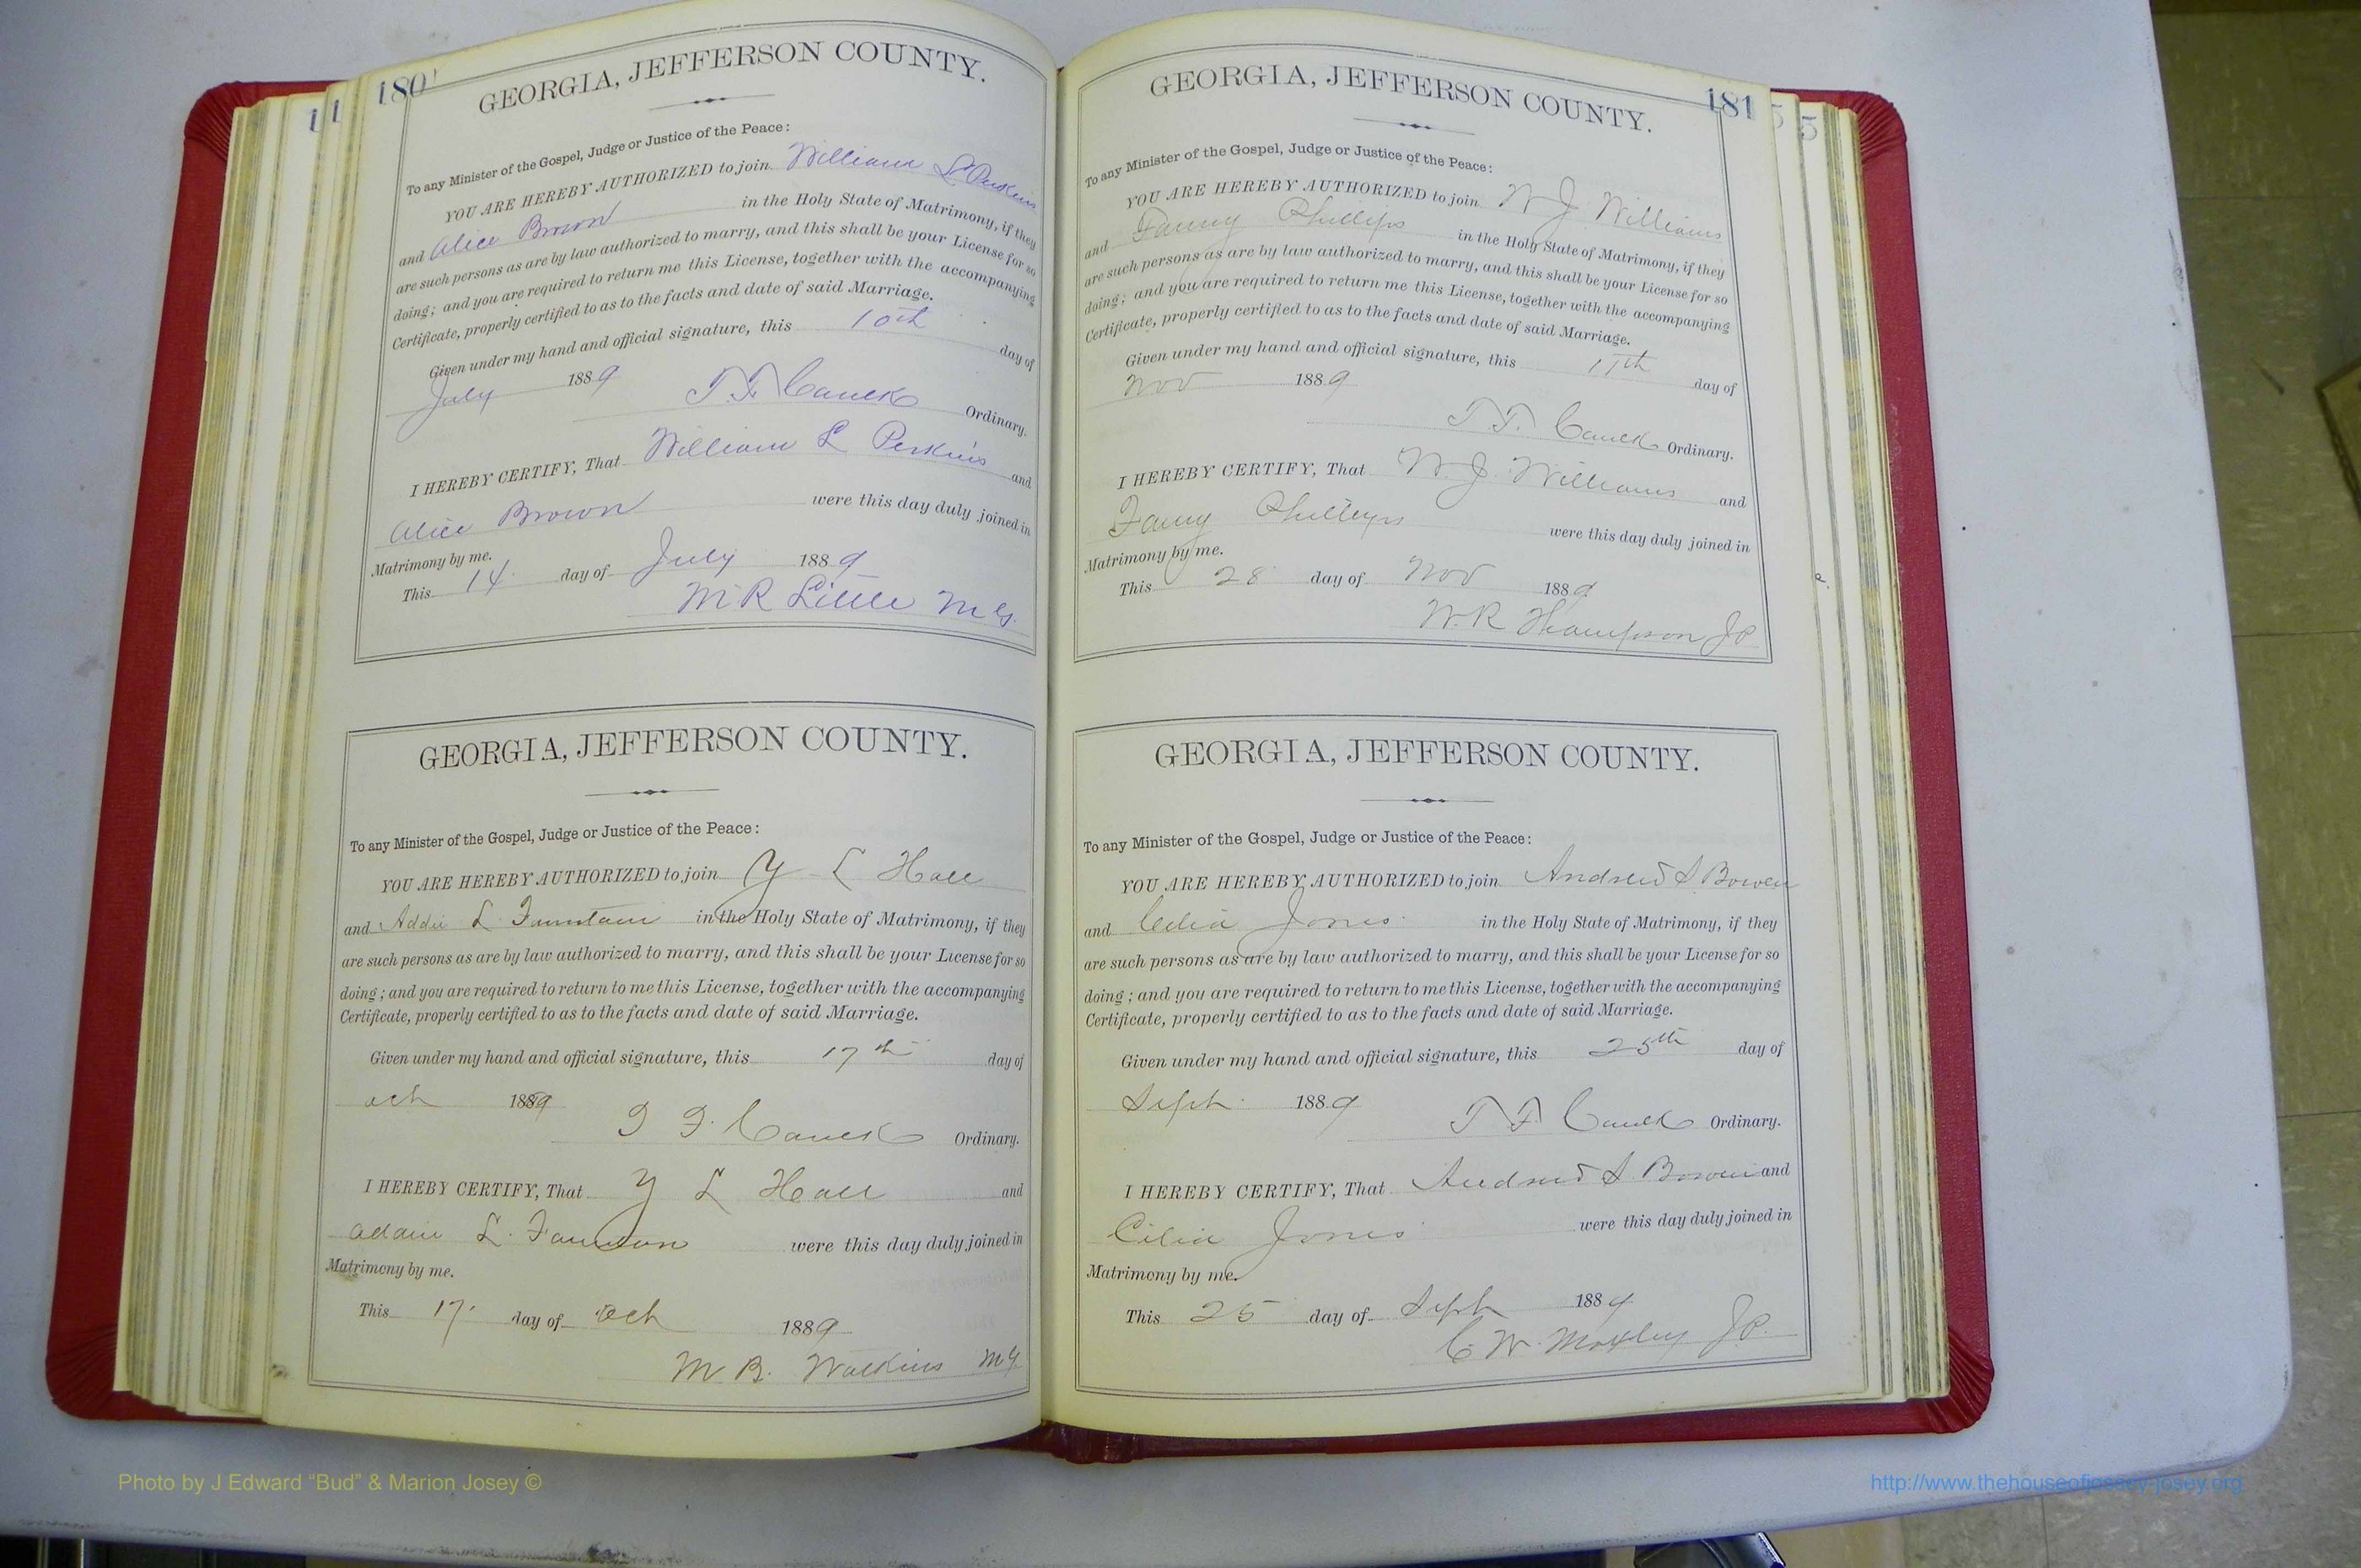 180
GEORGIA, JEFFERSON COUNTY.
To any Minister of the Gospel, Judge or Justice of the Peace:
YOU ARE HEREBY AUTHORIZED to join William L Perkins
and Alice Brown in the Holy State of Matrimony, if they
are such persons as are by law authorized to marry, and this shall be your License for so
doing; and you are required to return me this License, together with the accompanying
Certificate, properly certified to as to the facts and date of said Marriage.
Given under my hand and official signature, this 10th day of
July 1889
T. F. Caulk Ordinary.
I HEREBY CERTIFY, That William L Perkins and
Alice Brown were this day duly joined in
Matrimony by me.
This 14 day of July 1889
M R Little M G.
GEORGIA, JEFFERSON COUNTY.
To any Minister of the Gospel, Judge or Justice of the Peace:
YOU ARE HEREBY AUTHORIZED to join Y L Hall
and Addie L in the Holy State of Matrimony, if they
are such persons as are by law authorized to marry, and this shall be your License for so
doing; and you are required to return to me this License, together with the accompanying
Certificate, properly certified to as to the facts and date of said Marriage.
Given under my hand and official signature, this 17th day of
Oct 1889
T F. Caulk Ordinary.
I HEREBY CERTIFY, That Y L Hall and
L. were this day duly joined in
Matrimony by me.
This 17 day of Oct 1889
M B. Watkins M G
181
GEORGIA, JEFFERSON COUNTY.
To any Minister of the Gospel, Judge or Justice of the Peace:
YOU ARE HEREBY AUTHORIZED to join W J Williams
and Fanny Phillips in the Holy State of Matrimony, if they
are such persons as are by law authorized to marry, and this shall be your License for so
doing; and you are required to return me this License, together with the accompanying
Certificate, properly certified to as to the facts and date of said Marriage.
Given under my hand and official signature, this day of
Nov 1889
T F. Caulk Ordinary.
I HEREBY CERTIFY, That W. J. Williams and
Fanny Phillips were this day duly joined in
Matrimony by me.
This 28 day of Nov 1889
W. R Thompson JP
GEORGIA, JEFFERSON COUNTY.
To any Minister of the Gospel, Judge or Justice of the Peace:
YOU ARE HEREBY AUTHORIZED to join Andrew S. Bowen
and Celia Jones in the Holy State of Matrimony, if they
are such persons as are by law authorized to marry, and this shall be your License for so
doing; and you are required to return to me this License, together with the accompanying
Certificate, properly certified to as to the facts and date of said Marriage.
Given under my hand and official signature, this 25th day of
Sept 1889
T F. Caulk Ordinary.
I HEREBY CERTIFY, That Andrew S. Bowen and
Celia Jones were this day duly joined in
Matrimony by me.
This 25 day of Sept 1889
C W. Moxley JP.
Photo by J Edward “Bud” & Marion Josey ©
http://www.thehouseofjossey-josey.org